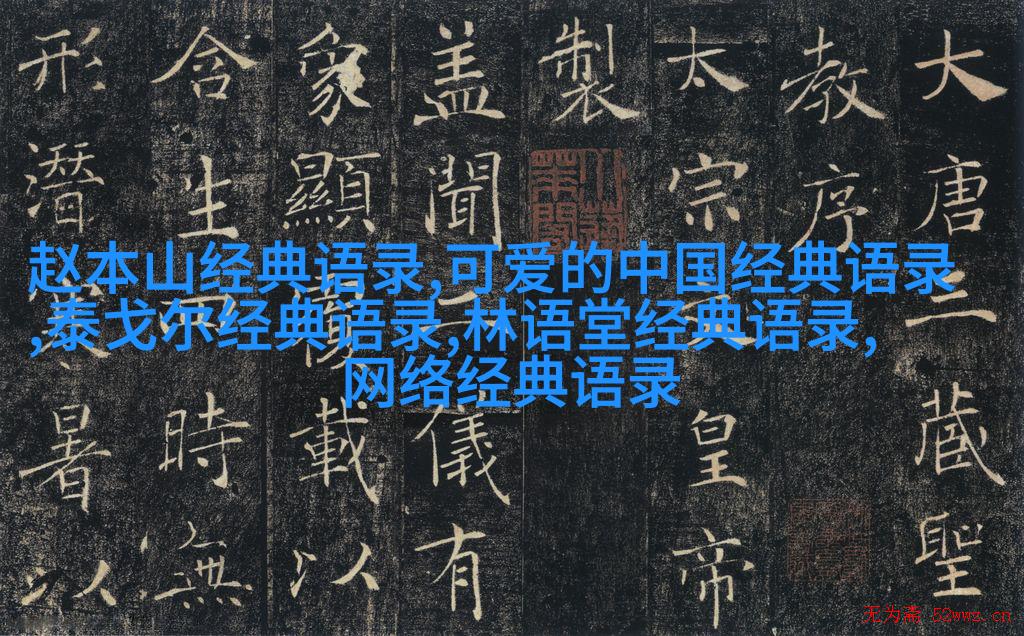 大唐三藏聖
教序
太宗皇帝
製
盖聞二儀有
象顯覆載以
含生四時無
形潛暑以
赵本山经典语录,可爱的中国经典语录
,泰戈尔经典语录,林语堂经典语录,
网络经典语录
无为斋 52wwz.cn